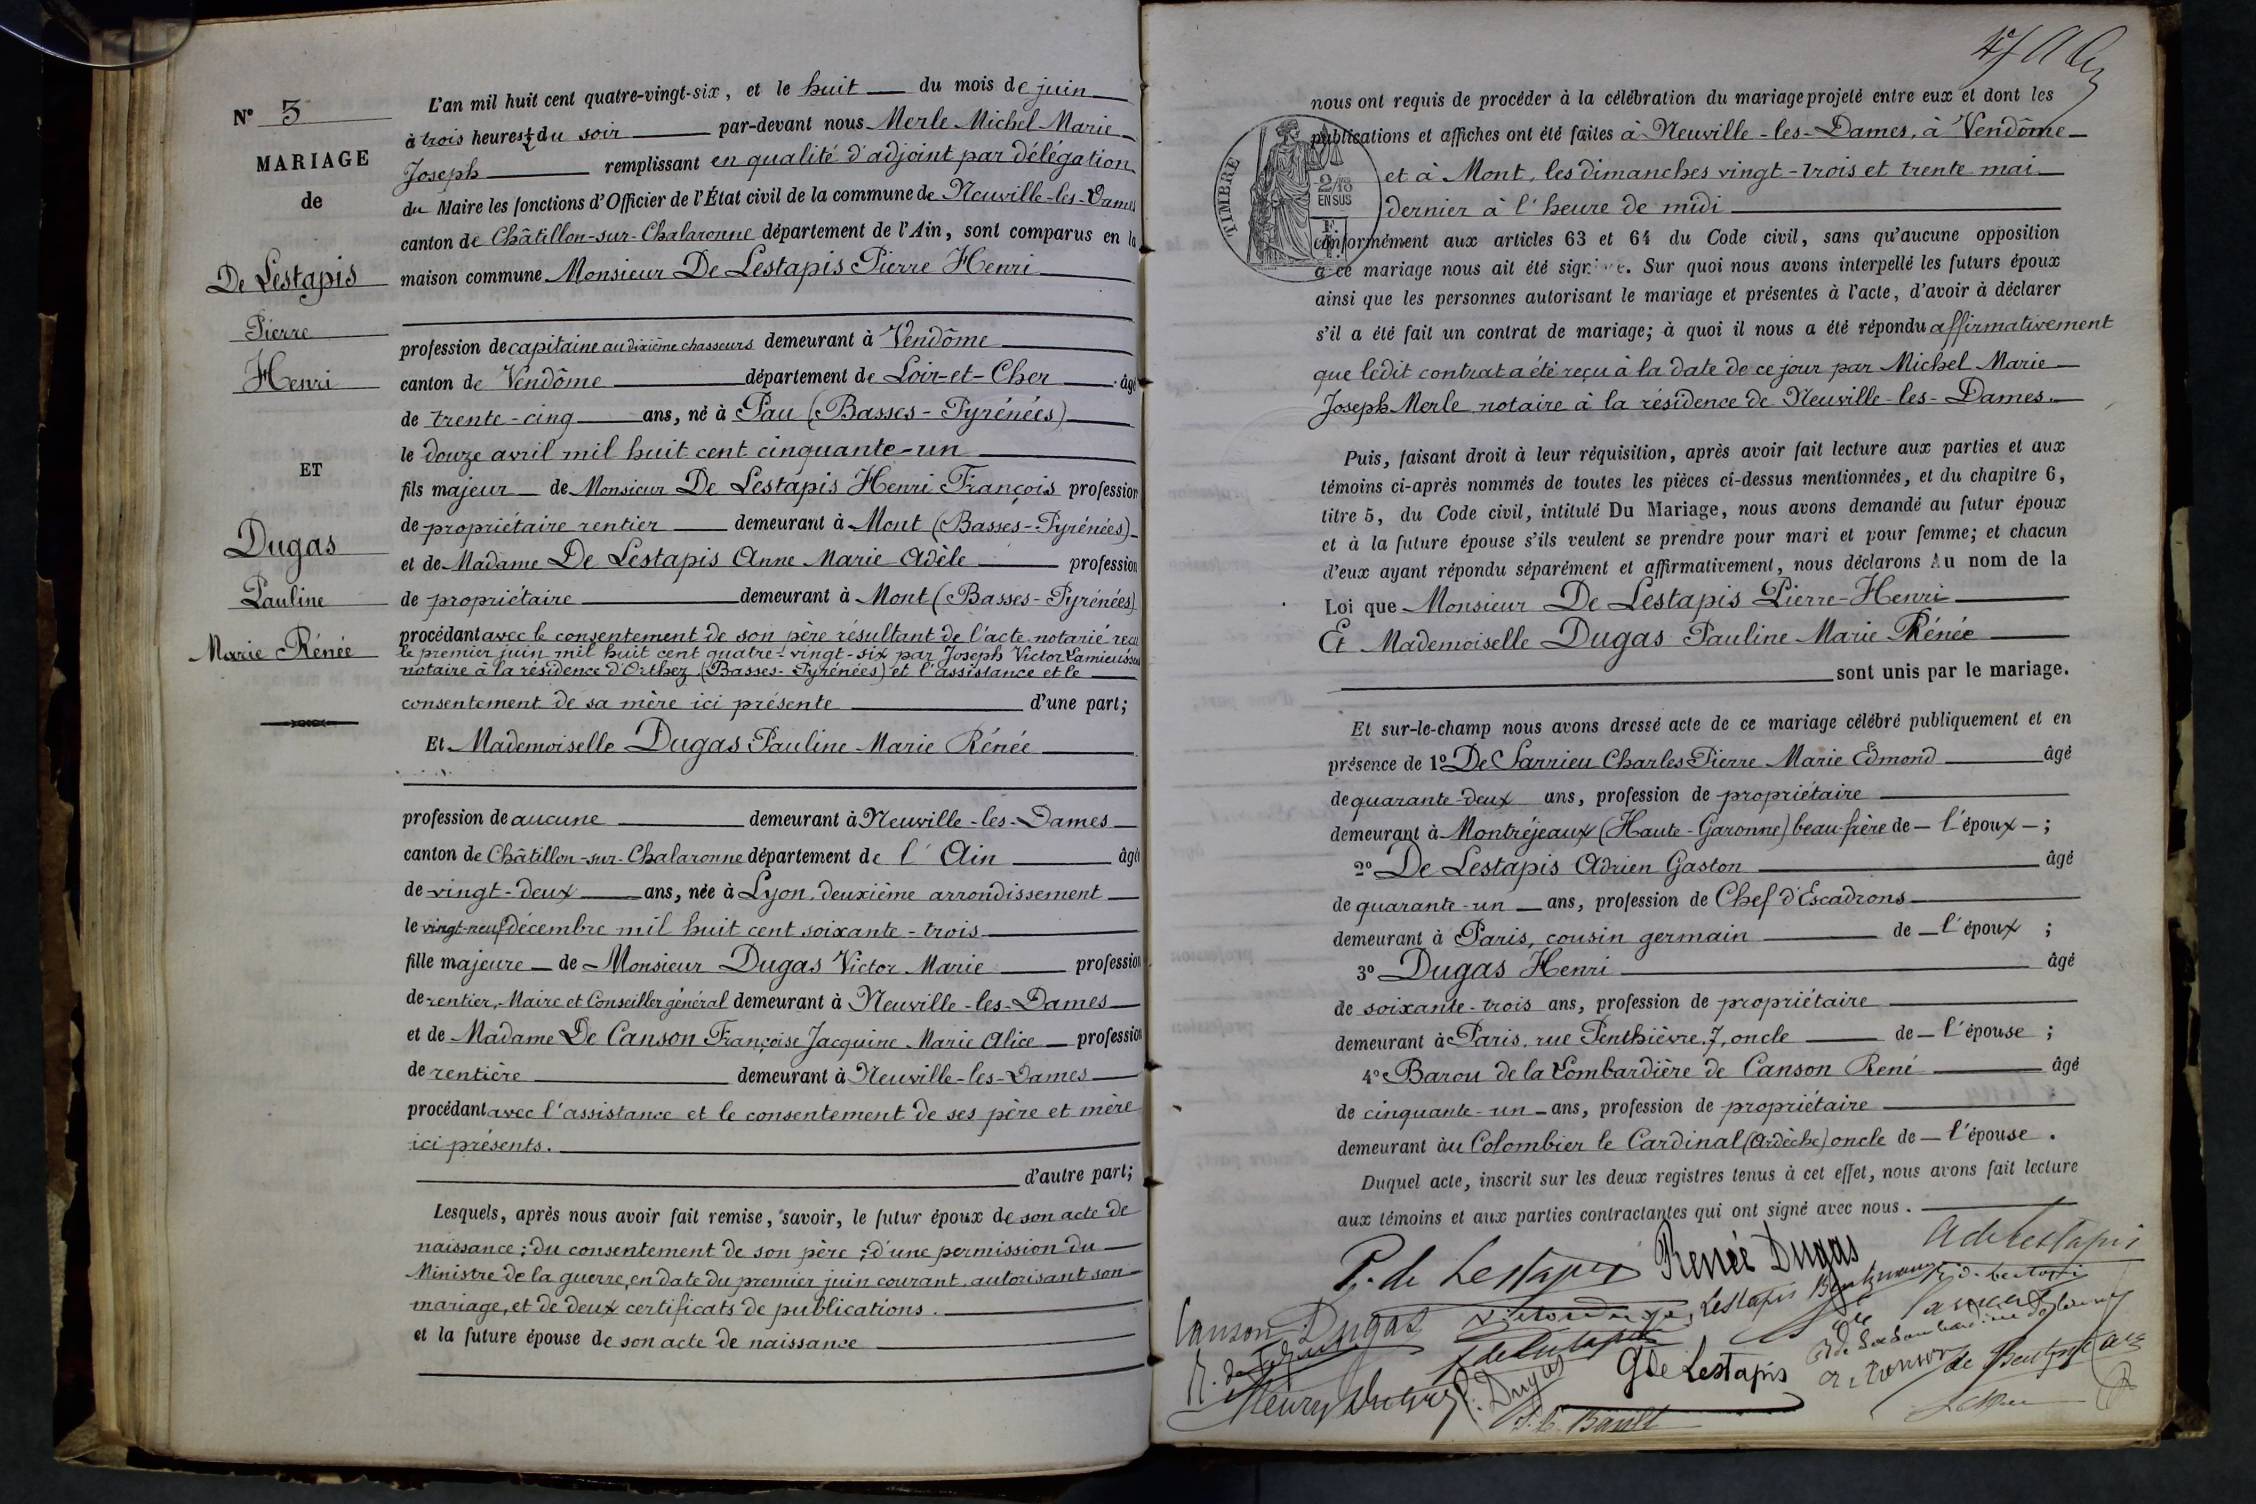 N° 5
MARIAGE
de
De Lestapis
Pierre
Henri
ET
Dugas
Pauline
Marie Rénée
L'an mil huit cent quatre-vingt-six, et le huit du mois de juin
à trois heures ½ du soir par-devant nous Merle Michel Marie
Joseph remplissant en qualité d'adjoint par délégation
du Maire les fonctions d'Officier de l'État civil de la commune de Neuville-les-Dames
canton de Châtillon-sur-Chalaronne département de l'Ain, sont comparus en la
maison commune Monsieur De Lestapis Pierre Henri
profession de capitaine au dixième chasseurs demeurant à Vendôme
canton de Vendôme département de Loir-et-Cher âgé
de trente-cinq ans, né à Pau (Basses-Pyrénées)
le douze avril mil huit cent cinquante-un
fils majeur de Monsieur De Lestapis Henri François profession
de propriétaire rentier demeurant à Mont (Basses-Pyrénées)
et de Madame De Lestapis Anne Marie Adèle profession
de propriétaire demeurant à Mont (Basses-Pyrénées)
procédant avec le consentement de son père résultant de l'acte notarié reçu
le premier juin mil huit cent quatre-vingt-six par Joseph Victor
notaire à la résidence d'Orthez (Basses-Pyrénées) et l'assistance et le
consentement de sa mère ici présente d'une part;
Et Mademoiselle Dugas Pauline Marie Rénée
profession de aucune demeurant à Neuville-les-Dames
canton de Châtillon-sur-Chalaronne département de l'Ain âgée
de vingt-deux ans, née à Lyon, deuxième arrondissement
le vingt-neuf décembre mil huit cent soixante-trois
fille majeure de Monsieur Dugas Victor Marie profession
de rentier, Maire et Conseiller général demeurant à Neuville-les-Dames
et de Madame De Canson Françoise Jacquine Marie Alice profession
de rentière demeurant à Neuville-les-Dames
procédant avec l'assistance et le consentement de ses père et mère
ici présents.
d'autre part;
Lesquels, après nous avoir fait remise, savoir, le futur époux de son acte de
naissance; du consentement de son père; d'une permission du
Ministre de la guerre, en date du premier juin courant, autorisant son
mariage, et de deux certificats de publications.
et la future épouse de son acte de naissance
nous ont requis de procéder à la célébration du mariage projeté entre eux et dont les
publications et affiches ont été faites à Neuville-les-Dames, à Vendôme
et à Mont, les dimanches vingt-trois et trente mai
dernier à l'heure de midi
TIMBRE
2/10
EN SUS
conformément aux articles 63 et 64 du Code civil, sans qu'aucune opposition
à ce mariage nous ait été signifiée. Sur quoi nous avons interpellé les futurs époux
ainsi que les personnes autorisant le mariage et présentes à l'acte, d'avoir à déclarer
s'il a été fait un contrat de mariage; à quoi il nous a été répondu affirmativement
que ledit contrat a été reçu à la date de ce jour par Michel Marie
Joseph Merle notaire à la résidence de Neuville-les-Dames.
Puis, faisant droit à leur réquisition, après avoir fait lecture aux parties et aux
témoins ci-après nommés de toutes les pièces ci-dessus mentionnées, et du chapitre 6,
titre 5, du Code civil, intitulé Du Mariage, nous avons demandé au futur époux
et à la future épouse s'ils veulent se prendre pour mari et pour femme; et chacun
d'eux ayant répondu séparément et affirmativement, nous déclarons Au nom de la
Loi que Monsieur De Lestapis Pierre-Henri
Et Mademoiselle Dugas Pauline Marie Rénée
sont unis par le mariage.
Et sur-le-champ nous avons dressé acte de ce mariage célébré publiquement et en
présence de 1° De Sarrieu Charles Pierre Marie Edmond âgé
de quarante-deux ans, profession de propriétaire
demeurant à Montréjeaux (Haute-Garonne) beau-frère de l'époux;
2° De Lestapis Adrien Gaston âgé
de quarante-un ans, profession de Chef d'Escadrons
demeurant à Paris, cousin germain de l'époux;
3° Dugas Henri âgé
de soixante-trois ans, profession de propriétaire
demeurant à Paris, rue Penthièvre, 7, oncle de l'épouse;
4° Barou de la Lombardière de Canson René âgé
de cinquante-un ans, profession de propriétaire
demeurant au Colombier le Cardinal (Ardèche) oncle de l'épouse.
Duquel acte, inscrit sur les deux registres tenus à cet effet, nous avons fait lecture
aux témoins et aux parties contractantes qui ont signé avec nous.
P. de Lestapis Renée Dugas A de Lestapis
Canson Dugas Victor Dugas Lestapis
G de Lestapis
Henry Dugas P. Dugas